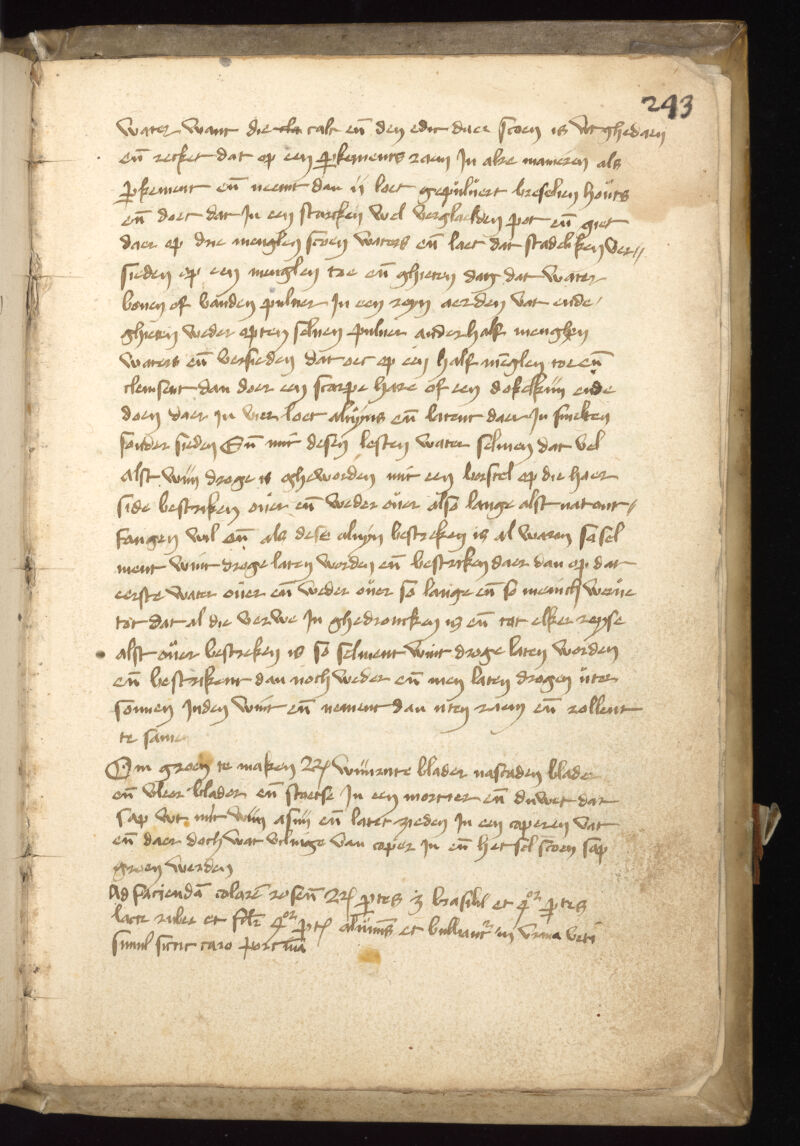 243
water want die calc en̄ den edic daer scoen is wt ghedaen
en̄ recket dat op een perkements raem In alre manieren als
perkement en̄ neemt dan ij loet gepuluert bresilien houts
en̄ doet dat In een starcken wel verglaesden pot en̄ giet
daer op drie menglen scoen waters en̄ laet dat stadeliken ver//
sieden op een menglen toe en̄ ghieten dat water
bouen of vanden puluer In een reyn aerden vat ende
ghieten weder opten seluen puluer anderhalf menglen
waters en̄ versieden dat oec op een half mēglen toe en̄
clensent dan doer een scarpe hare of een doecskijn ende
doen daer in vier loet aluyns en̄ latent daer In smelten
sonder sieden En̄ mit desen lesten water selmen dat vel
alst wijn droge is gheworden mit een borstel op die haer
side bestriken ouer en̄ weder ouer also lange alst nat ont//
fangen wil en̄ als dese aluyn bestreken is al warm so sel
ment wint droge laten worden en̄ bestriken daer dan op dat
eerste water ouer en̄ weder ouer so lange en̄ so menich werue
tot dat al die verwe In ghedroncken is en̄ tot elker reyse
alst ouer bestreken is so selment wint droge laten worden
en̄ bestrikent dan noch weder en̄ men laten drogen uter
sonnen Inden wint en̄ nement dan uten raem en̄ rollent
te samen
Om groen te maken Rx wijnrute blader nascaden blade
en̄ vleer blader en̄ stoetse In een mortier en̄ duwet dat
sap wt mit wijn asijn en̄ latet zieden In een coperen vat
en̄ daer doch wat vilinge van coper in en̄ het sel scoen sap
groen werden
Ad faciendā colorē roseū Rx ptes iij brasilii et 4or ptes
lacce rubee et 4or aluminis et bulliant in vrina
simul sicut caro porcina